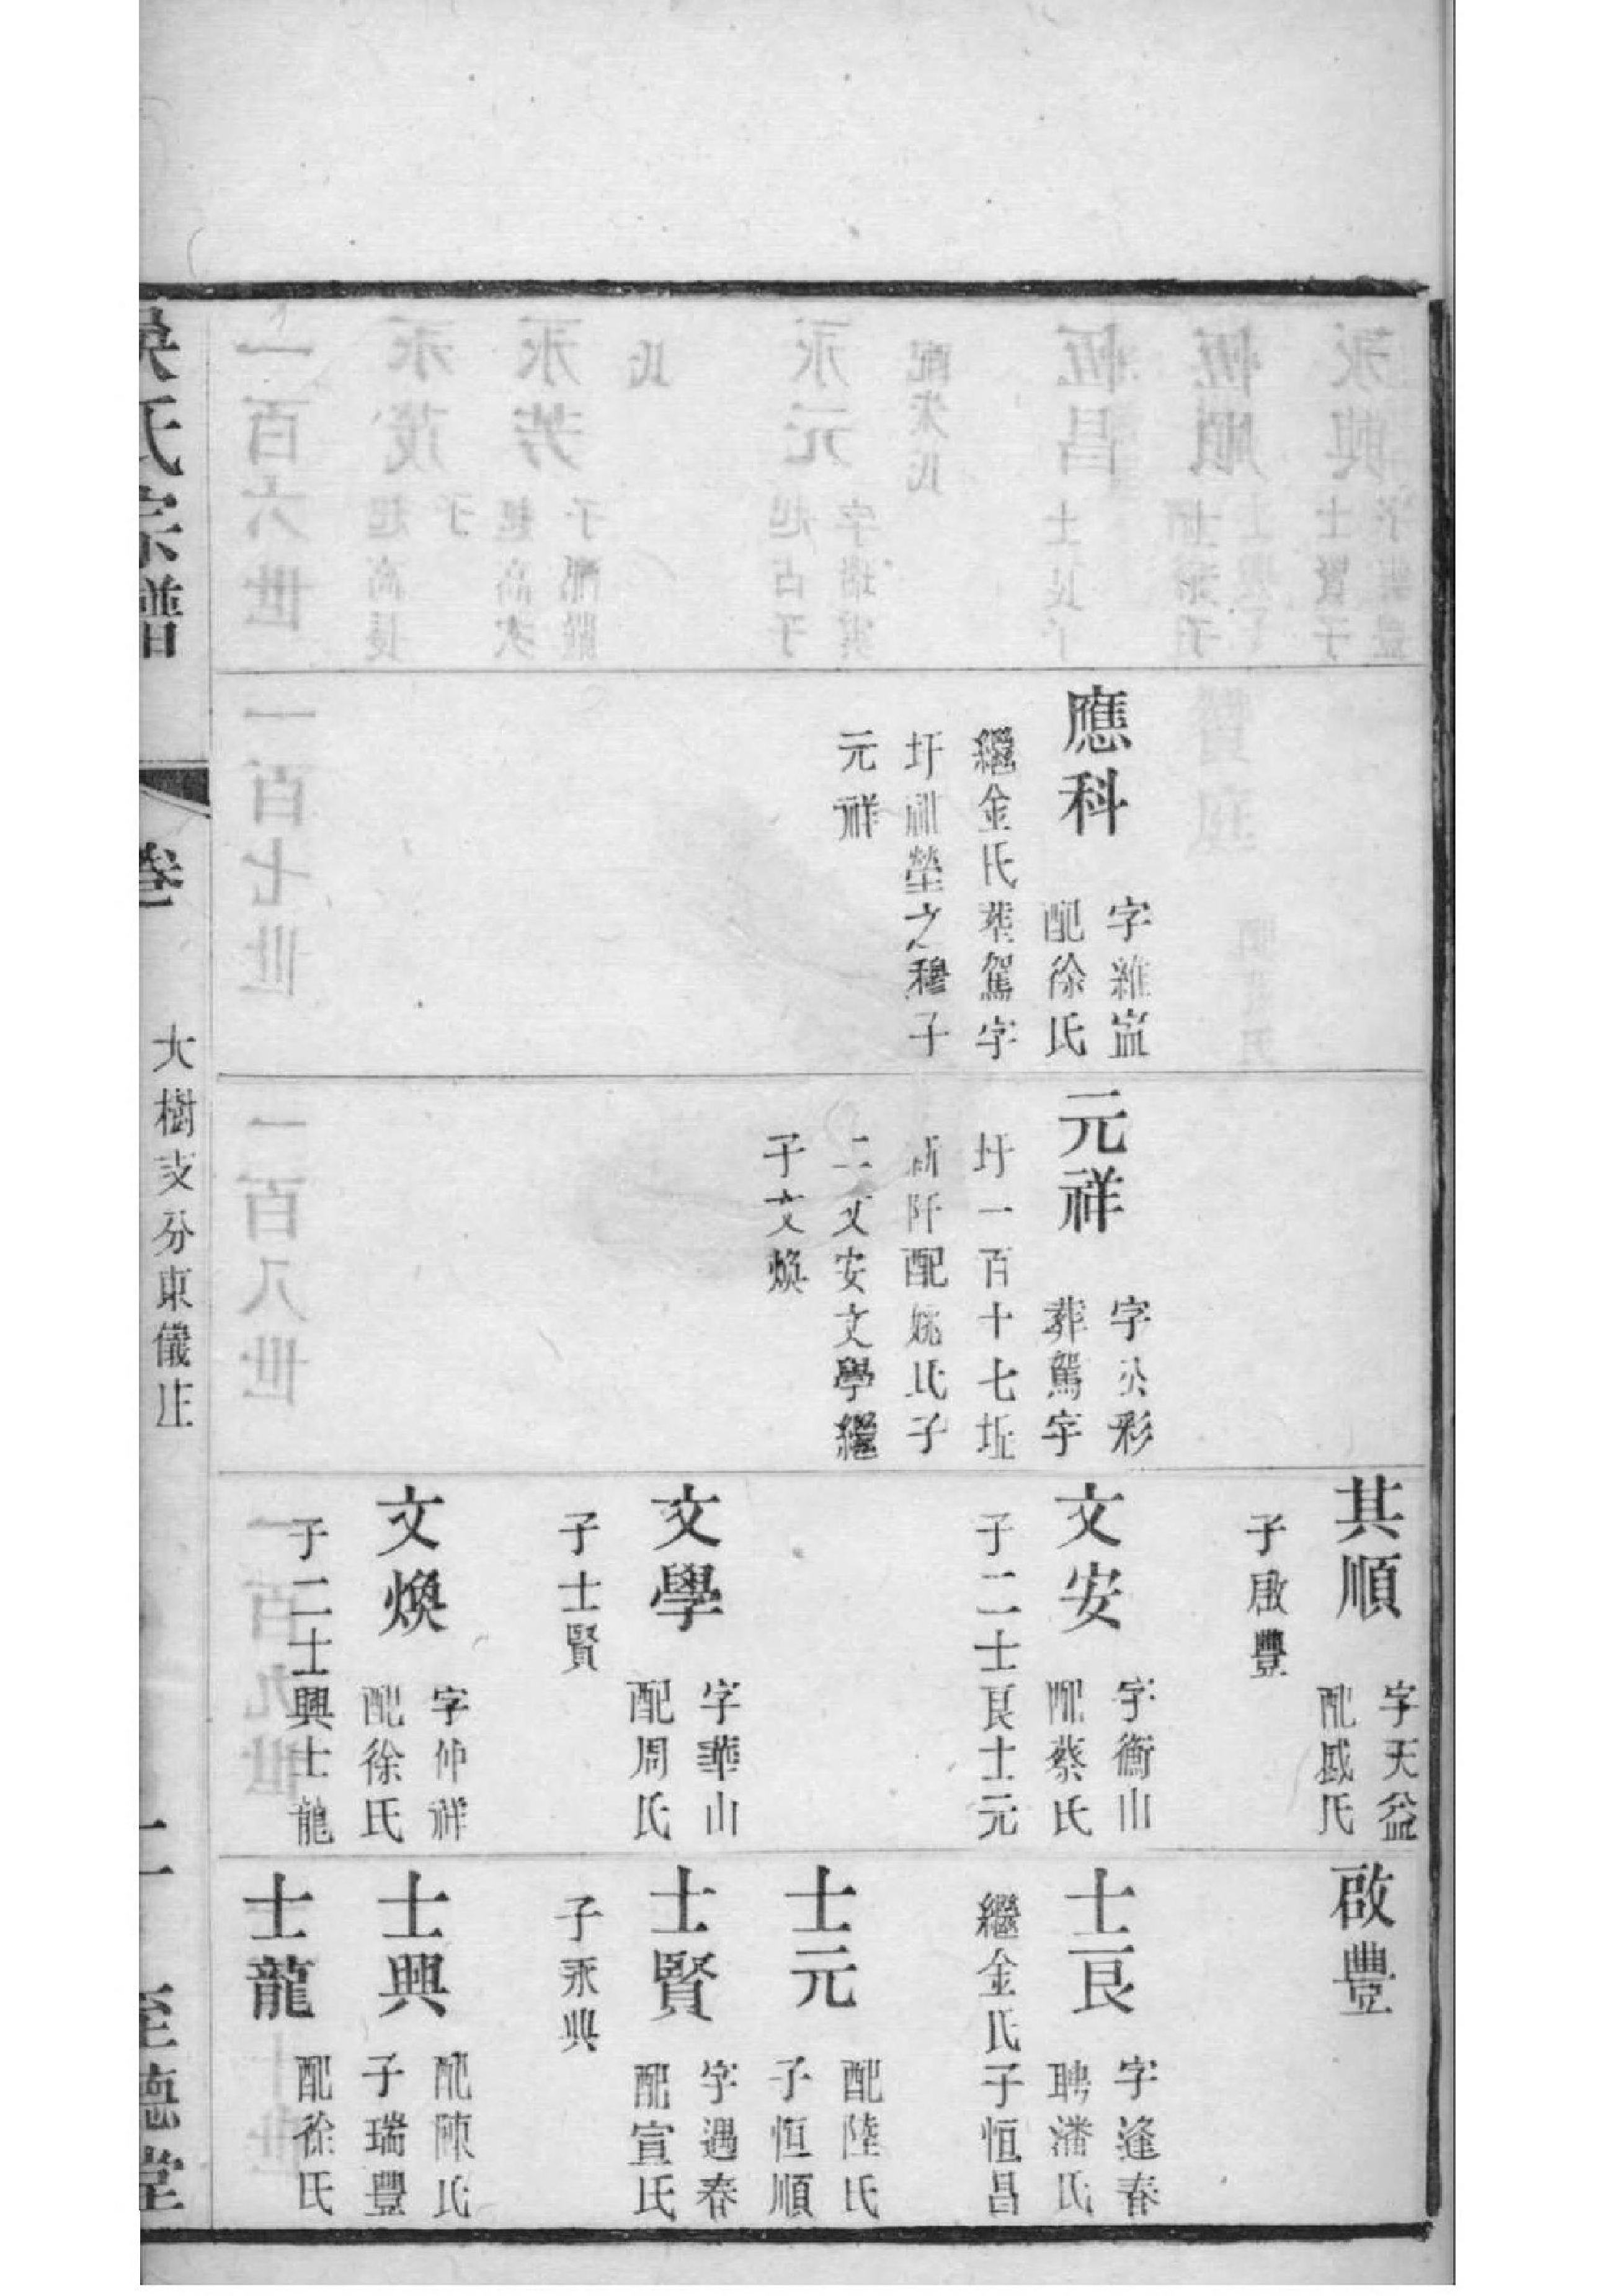 應科
字雒嵓
配徐氏
繼金氏葬駕字
圩祖塋之穆子
元祥
元祥
字公彩
葬駕字
圩一百十七坵
新阡配姚氏子
二文安文學繼
子文煥
其順
字天益
配戚氏
子啟豐
文安
字衡山
配蔡氏
子二士良士元
文學
字華山
配周氏
子士賢
文煥
字仲祥
配徐氏
子二士興士龍
啟豐
士良
字逢春
聘潘氏
繼金氏子恒昌
士元
配陸氏
子恒順
士賢
字遇春
配宣氏
子永興
士興
配陳氏
子瑞豐
士龍
配徐氏
吳氏宗譜
卷
大樹支分東儀庄
至德堂